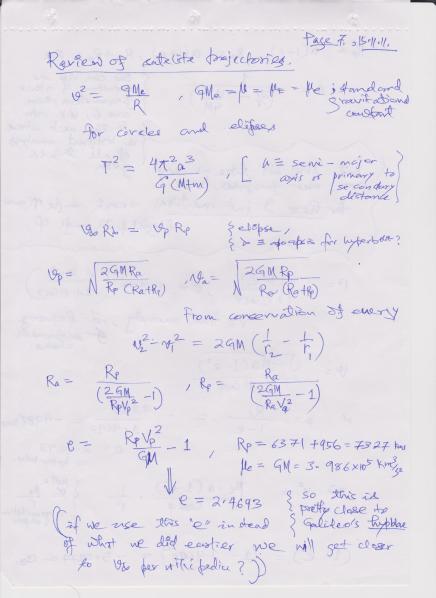 Page 7. , 15.11.11.
Review of satelite trajectories.
v² = GMe/R , GMe = μ = μE = μe ; standard gravitational constant
for circles and elipses
T² = 4π²a³/G(M+m) , [ a ≡ semi-major axis or primary to secondary distance }
va Ra = vp Rp { elipse,
for hyperbola?
vp = √(2GMRa/Rp(Ra+Rp)) , va = √(2GMRp/Ra(Ra+Rp))
From conservation of energy
v₂² - v₁² = 2GM (1/r₂ - 1/r₁)
Ra = Rp/(2GM/RpVp² - 1) , Rp = Ra/(2GM/RaVa² - 1)
e = RpVp²/GM - 1 , Rp = 6371 + 956 = 7327 kms
μe = GM = 3.986×10⁵ km³/s²
⇓
e = 2.4693 { so this is pretty close to Galileo's
(if we use this "e" instead
of what we did earlier we will get closer
to v∞ per wikipedia ?)